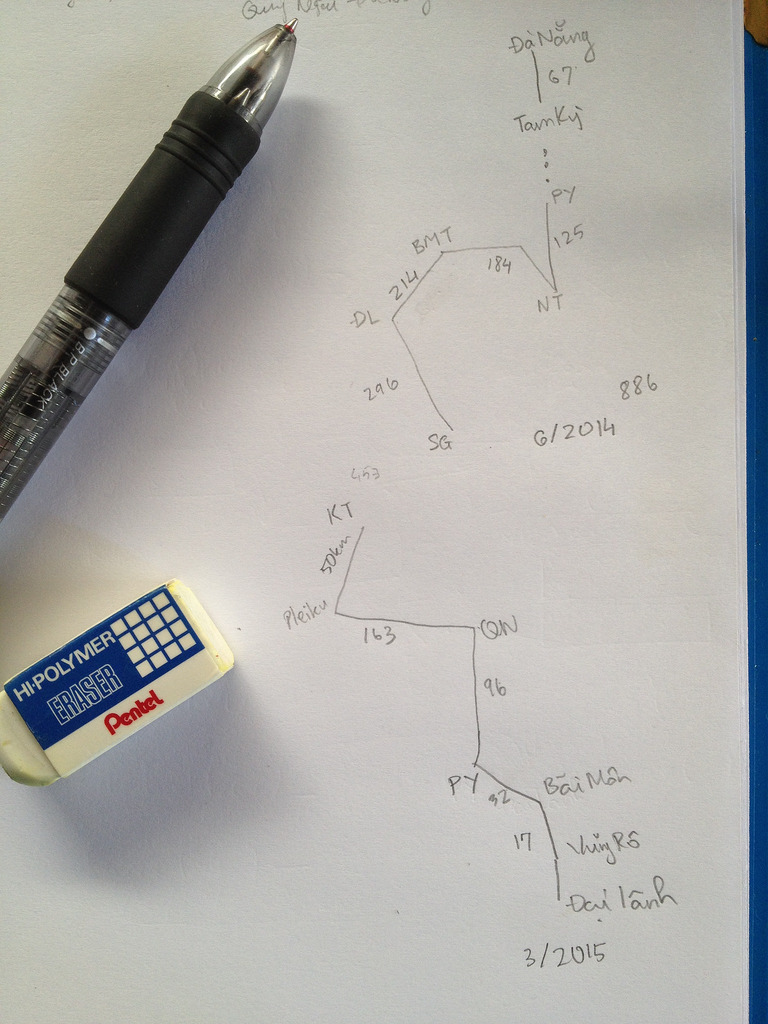 Quy Nhơn
Đà Nẵng
67
Tam Kỳ
PY
125
BMT
184
NT
214
ĐL
296
886
SG
6/2014
453
KT
50km
Pleiku
163
QN
96
PY
32
Bãi Môn
17
Vũng Rô
Đại Lãnh
3/2015
B.P BLACK
HI-POLYMER
ERASER
Pentel